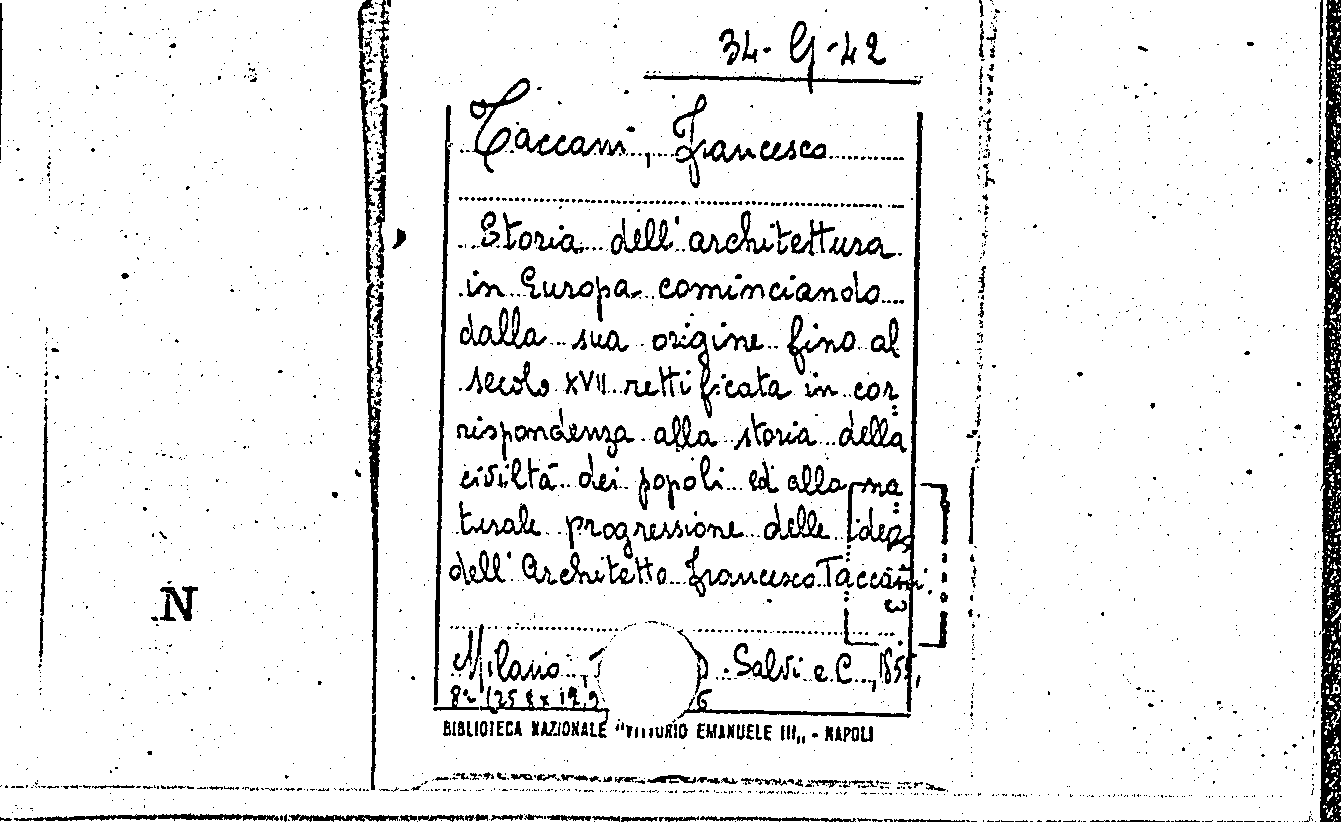 34-G-42
Taccani, Francesco
Storia dell'architettura
in Europa cominciando
dalla sua origine fino al
secolo XVII rettificata in cor=
rispondenza alla storia della
civiltà dei popoli ed alla na=
turale progressione delle idee
dell'Architetto Francesco Taccani.
N
Milano, Salvi e C., 1855,
BIBLIOTECA NAZIONALE "VITTORIO EMANUELE III„ - NAPOLI